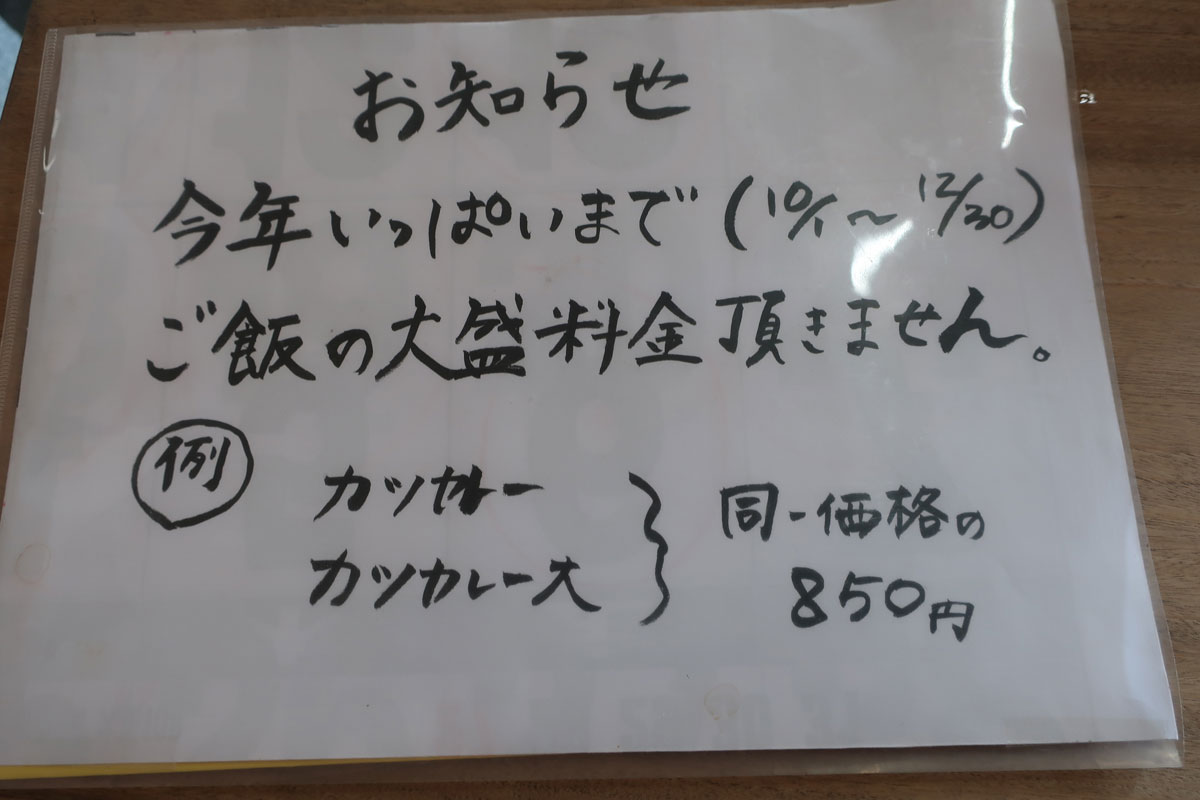 お知らせ
今年いっぱいまで(10/1〜12/30)
ご飯の大盛料金頂きません。
例 カツカレー
カツカレー大
同一価格の
850円